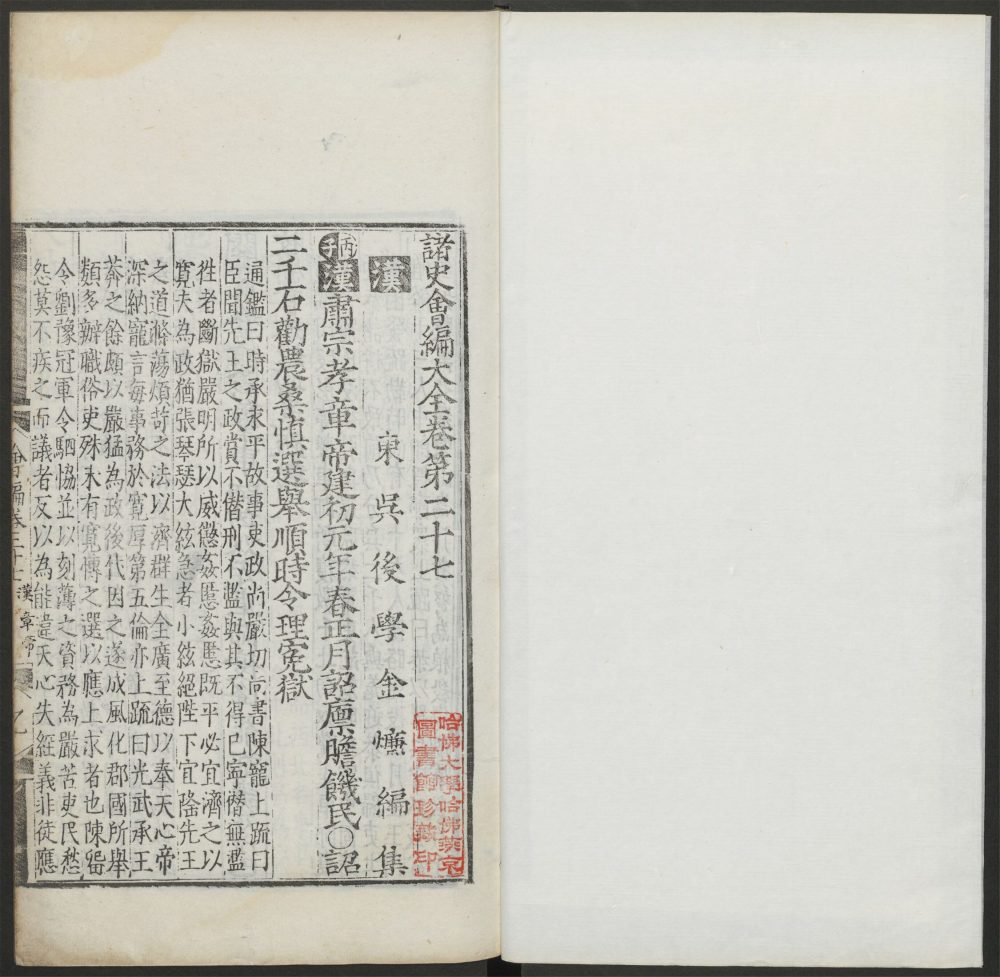 諸史會編大全卷第二十七
東吳後學金燫編集
漢
丙子漢肅宗孝章帝建初元年春正月詔廩贍饑民○詔
二千石勸農桑慎選舉順時令理寃獄
通鑑曰時承永平故事吏政尚嚴切尚書陳寵上疏曰
臣聞先王之政賞不僭刑不濫與其不得已寧僭無濫
徃者斷獄嚴明所以威懲姦慝姦慝既平必宜濟之以
寛夫為政猶張琴瑟大絃急者小絃絕陛下宜隆先王
之道滌蕩煩苛之法以濟群生全廣至德以奉天心帝
深納寵言每事務於寛厚第五倫亦上疏曰光武承王
莽之餘頗以嚴猛為政後代因之遂成風化郡國所舉
類多辦職俗吏殊未有寛博之選以應上求者也陳留
令劉豫冠軍令駟協並以刻薄之資務為嚴苦吏民愁
怨莫不疾之而議者反以為能違天心失經義非徒應
會編卷二十七 漢章帝
哈佛大學哈佛燕京
圖書館珍藏印